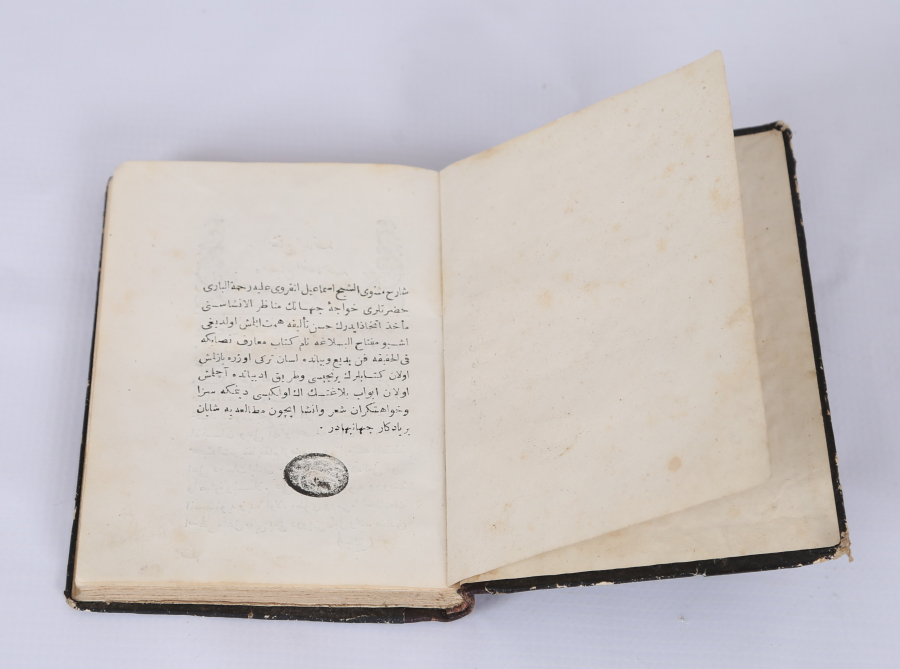 شارح مثنوی الشیخ اسماعیل انقروی علیه رحمة الباری
حضرتلری خواجۀ جهانك مناظر الانشاسنی
مأخذ اتخاذ ایدرك حسن تألیفه همت ایلمش اولدیغی
اشبو مفتاح البلاغه نام کتاب معارف نصابکه
فی الحقیقه فن بدیع و بیانده لسان ترکی اوزره یازلمش
اولان کتابلرك برنجیسی و طریق ادبیاتده آچلمش
اولان ابواب بلاغتك اك اولکیسی دینمکه سزا
وخواهشکران شعر وانشا ایچون مطالعه یه شایان
بر یادکار جهانبهادر ٠